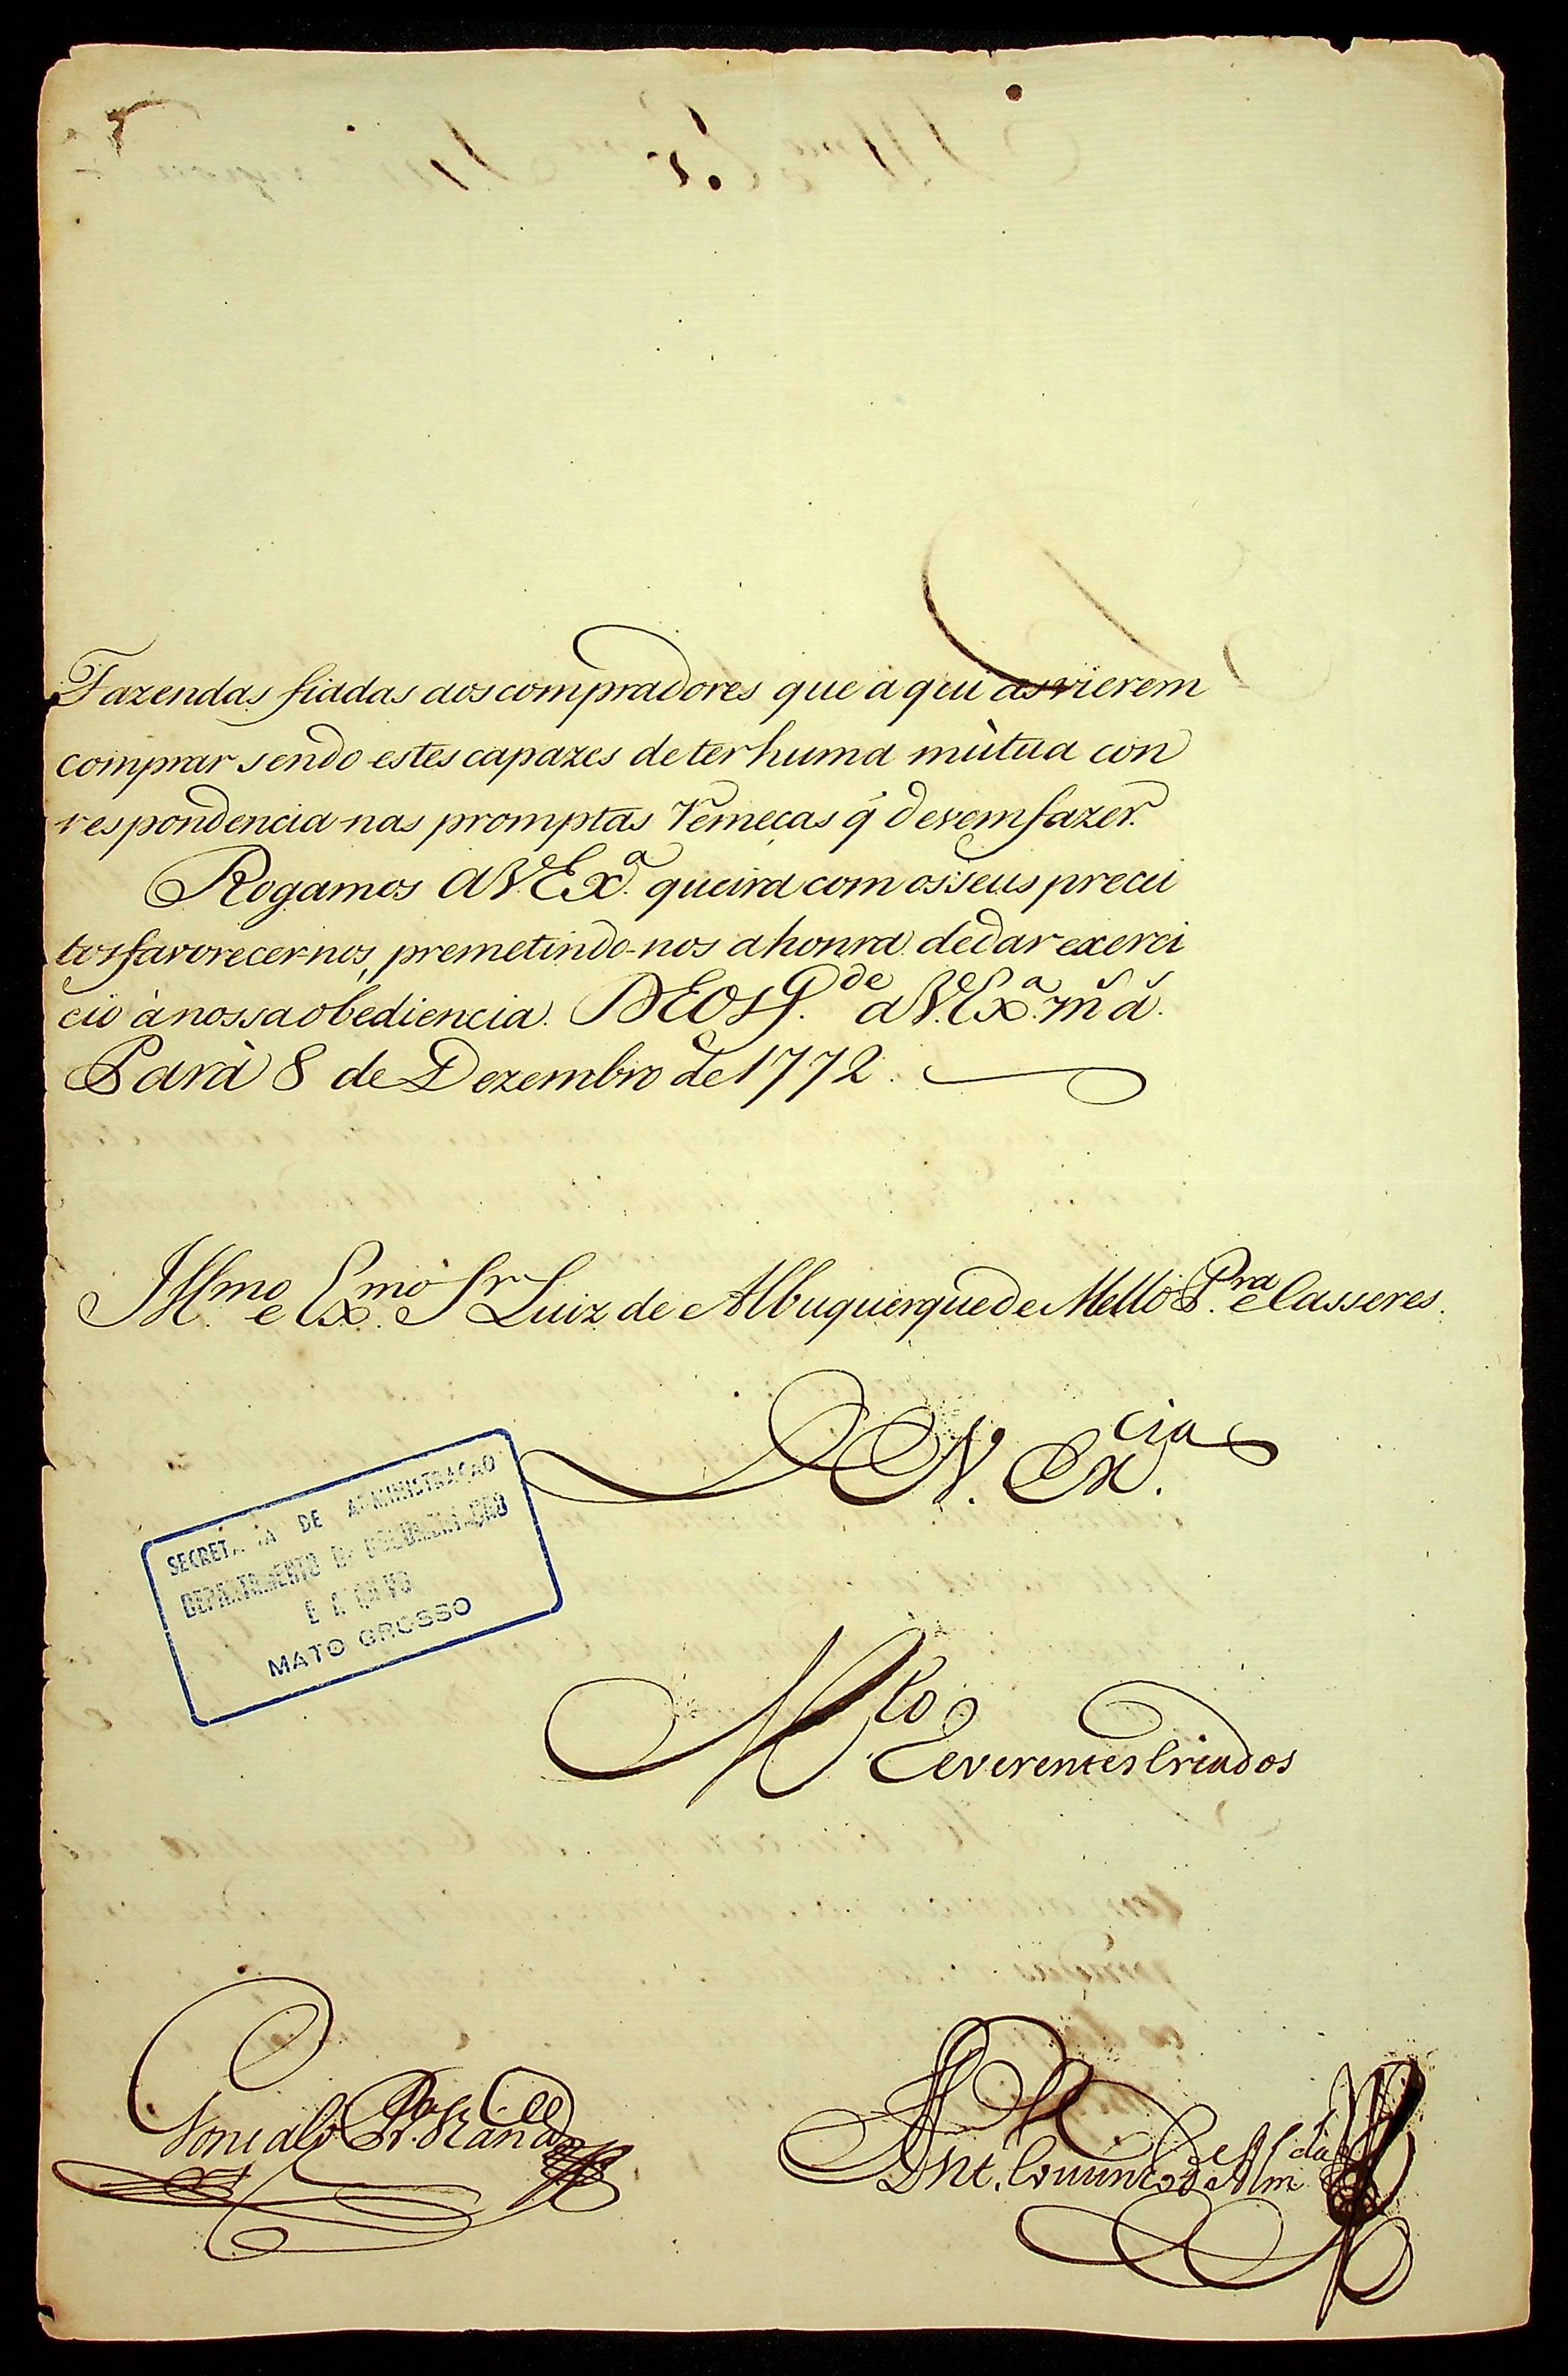 Fazendas fiadas aos compradores que aqui as vierem
comprar sendo estes capazes de ter huma mùtua con
respondencia nas promptas remeças q̃ devem fazer.
Rogamos a V. Exª. queira com os seus precei
tos favorecer-nos, premetindo-nos a honra de dar exerci
cio à nossa obediencia. DEOS G.de a V. Exª. m.s a.s
Parà 8 de Dezembro de 1772.
Ill.mo e Ex.mo Sr. Luiz de Albuquerque de Mello P.ra e Casseres.
V. Ex.cia
M.to
Reverentes Criados
SECRETARIA DE ADMINISTRAÇAO
DEPARTAMENTO DE DOCUMENTAÇÃO
E ARQUIVO
MATO GROSSO
Gonçalo Pr.ª Vianna
Ant. Coutinho de Alm.da